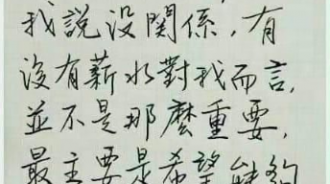 我說没關係，有
沒有薪水對我而言，
並不是那麼重要，
最主要是希望能夠